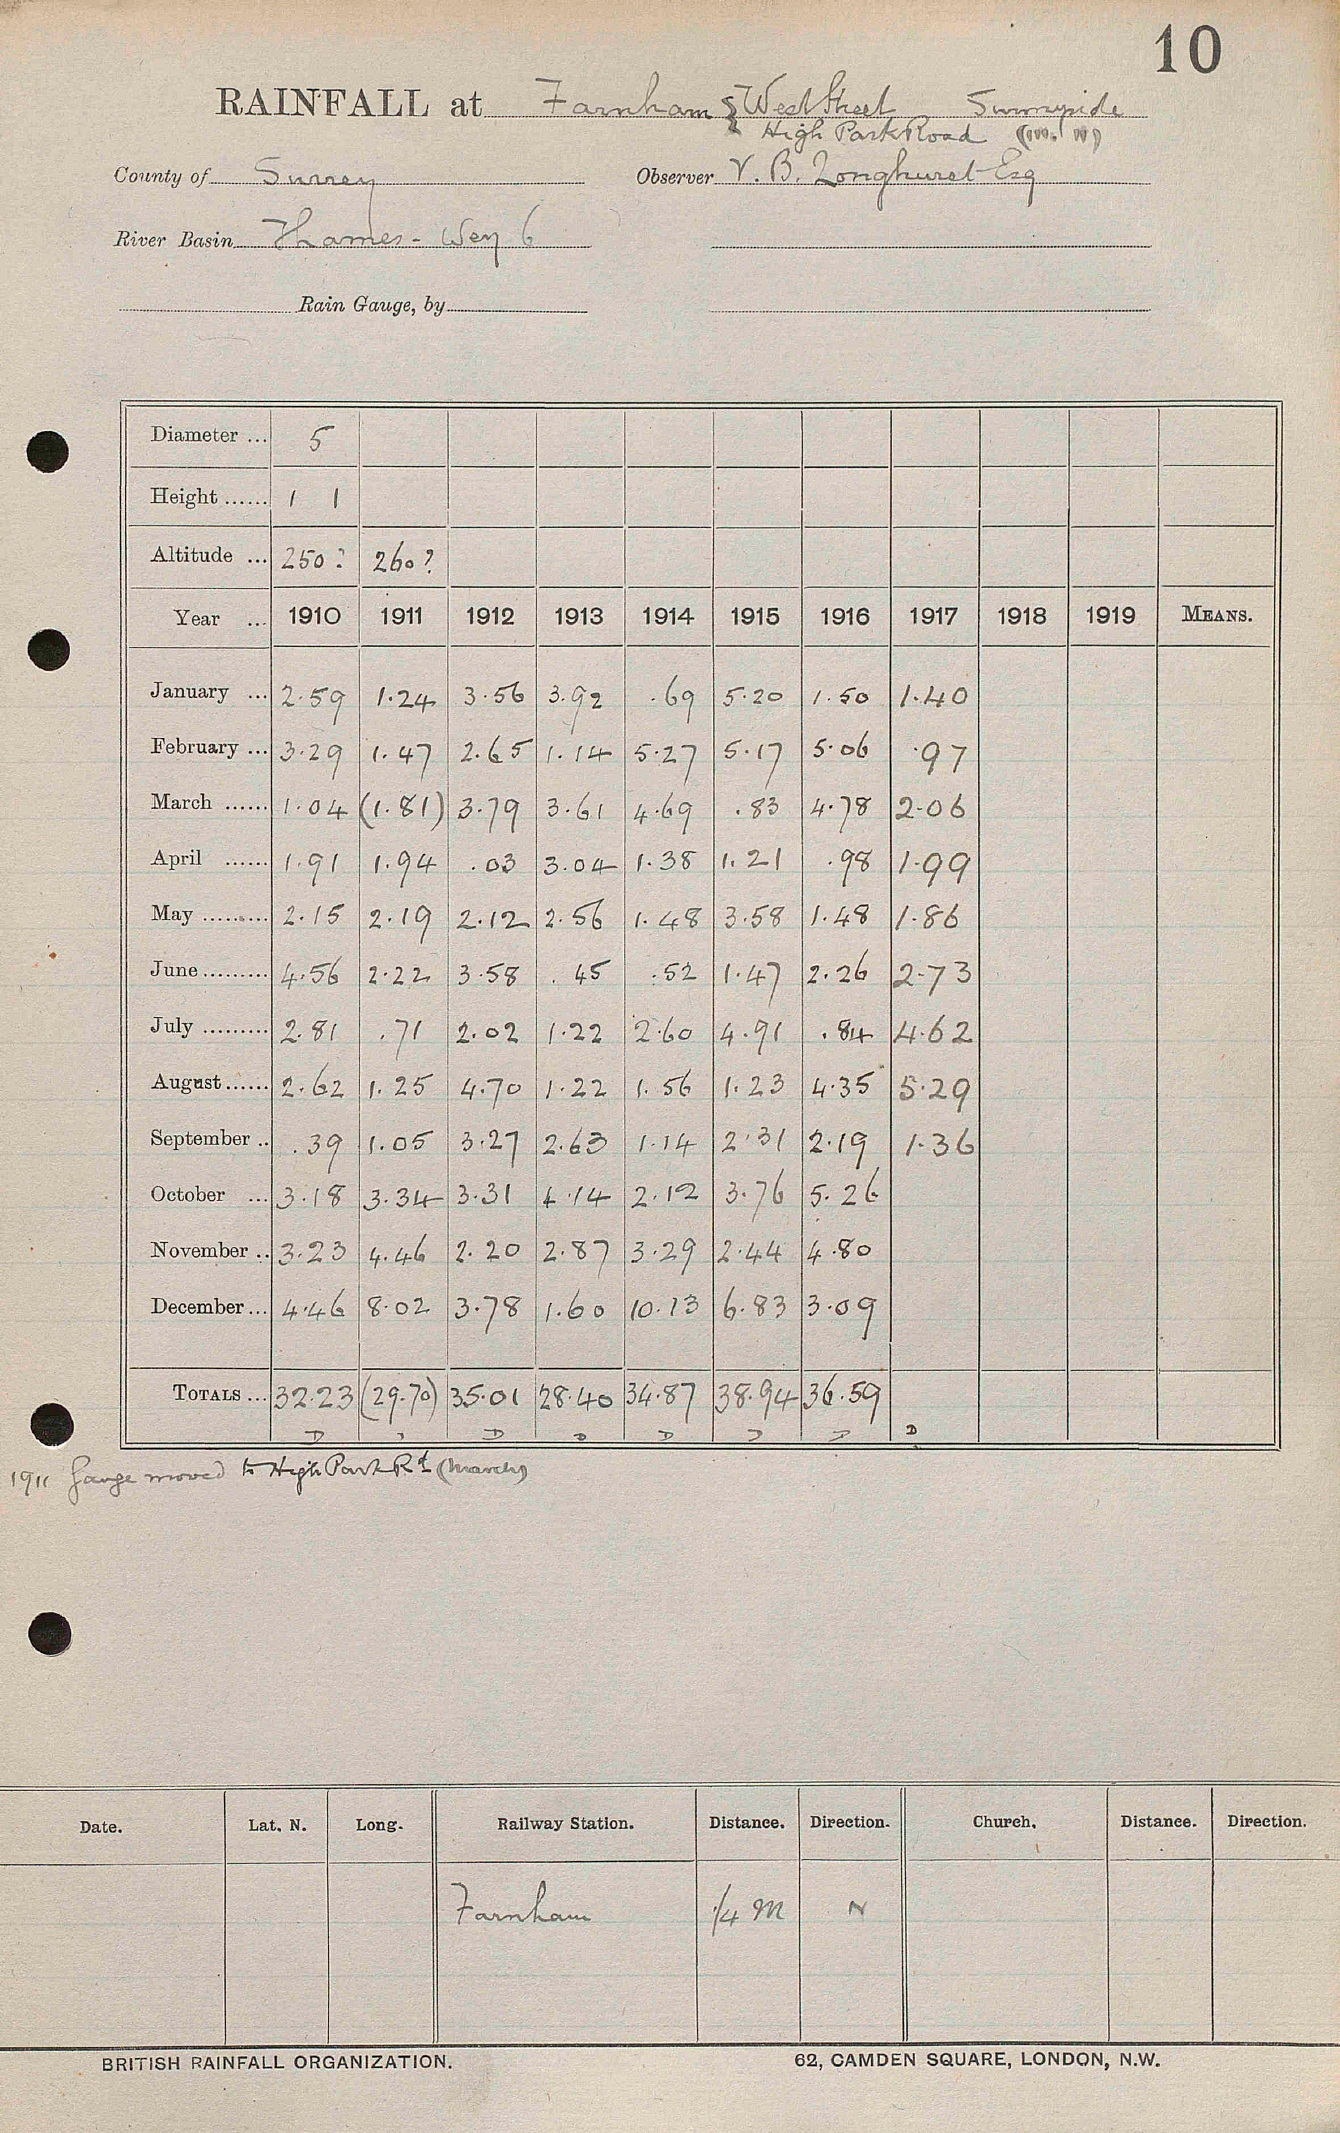 10
RAINFALL at Farnham { West Street Sunnyside
High Park Road
County of Surrey Observer V. B. Longhurst Esq
River Basin Thames - Wey 6
Rain Gauge, by
Diameter ... 5
Height ...... 1 1
Altitude ... 250? 260?
Year ... 1910 1911 1912 1913 1914 1915 1916 1917 1918 1919 MEANS.
January ... 2.59 1.24 3.56 3.92 .69 5.20 1.50 1.40
February ... 3.29 1.47 2.65 1.14 5.27 5.17 5.06 .97
March ...... 1.04 (1.81) 3.79 3.61 4.69 .83 4.78 2.06
April ...... 1.91 1.94 .03 3.04 1.38 1.21 .98 1.99
May .......... 2.15 2.19 2.12 2.56 1.48 3.58 1.48 1.86
June ......... 4.56 2.22 3.58 .45 .52 1.47 2.26 2.73
July ......... 2.81 .71 2.02 1.22 2.60 4.91 .84 4.62
August ...... 2.62 1.25 4.70 1.22 1.56 1.23 4.35 5.29
September .. .39 1.05 3.27 2.63 1.14 2.31 2.19 1.36
October ... 3.18 3.34 3.31 4.14 2.12 3.76 5.26
November .. 3.23 4.46 2.20 2.87 3.29 2.44 4.80
December ... 4.46 8.02 3.78 1.60 10.13 6.83 3.09
TOTALS ... 32.23 (29.70) 35.01 28.40 34.87 38.94 36.59
D D D D D D D
1911 Gauge moved to High Park Rd (March)
Date. Lat. N. Long. Railway Station. Distance. Direction. Church. Distance. Direction.
Farnham 1/4 M N
BRITISH RAINFALL ORGANIZATION. 62, CAMDEN SQUARE, LONDON, N.W.